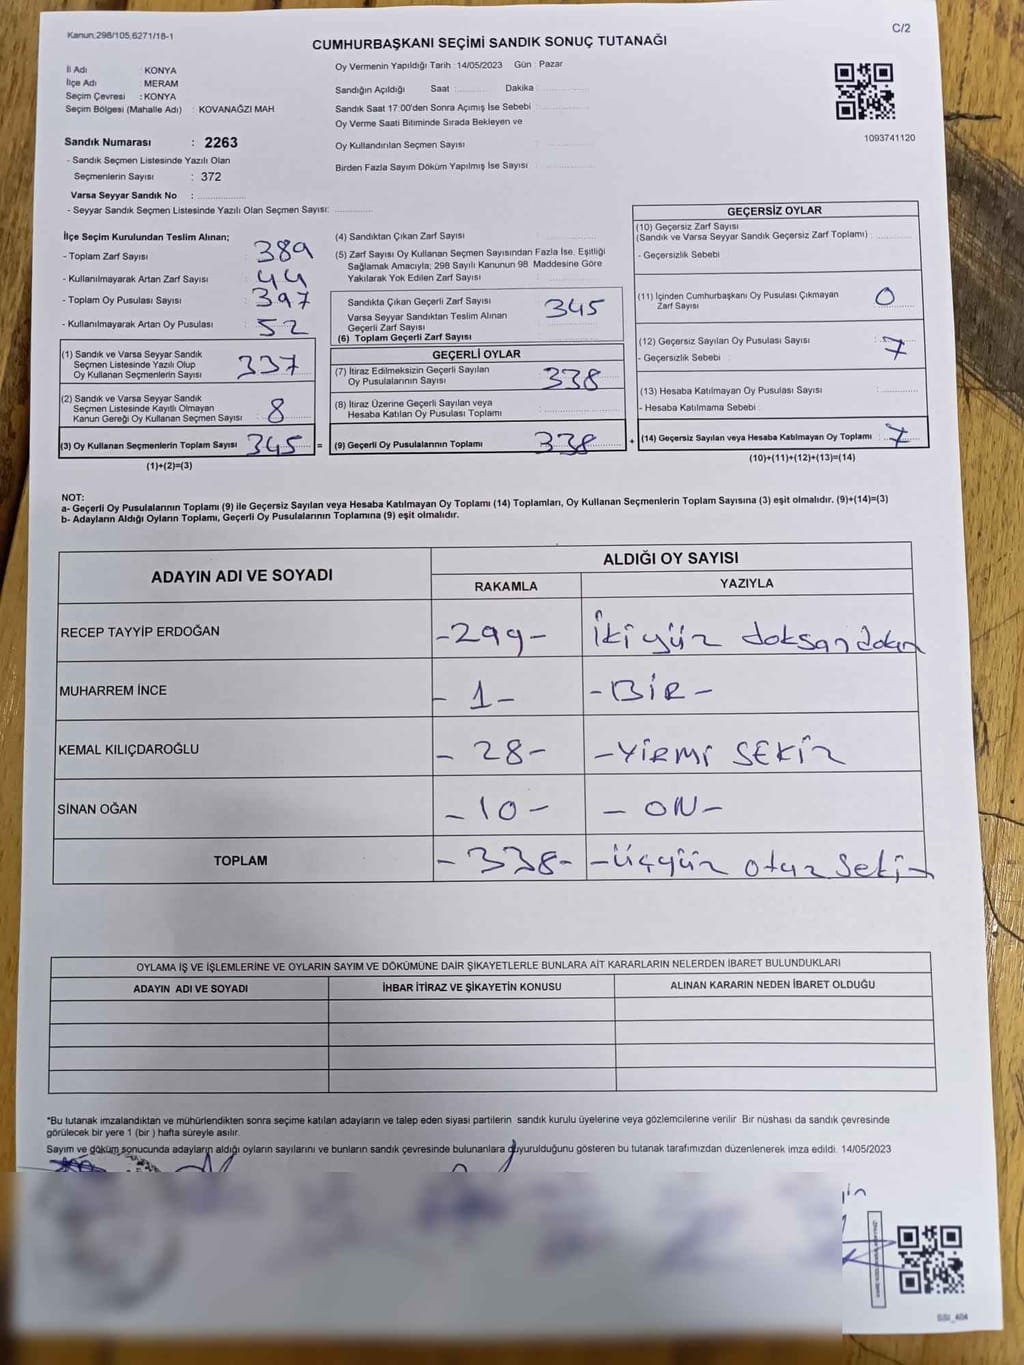 Kanun:298/105,6271/18-1
C/2
CUMHURBAŞKANI SEÇİMİ SANDIK SONUÇ TUTANAĞI
İl Adı : KONYA
İlçe Adı : MERAM
Seçim Çevresi : KONYA
Seçim Bölgesi (Mahalle Adı) : KOVANAĞZI MAH
Oy Vermenin Yapıldığı Tarih : 14/05/2023 Gün : Pazar
Sandığın Açıldığı Saat : Dakika :
Sandık Saat 17:00'den Sonra Açımış İse Sebebi :
Oy Verme Saati Bitiminde Sırada Bekleyen ve
Oy Kullandırılan Seçmen Sayısı :
Birden Fazla Sayım Döküm Yapılmış İse Sayısı :
1093741120
Sandık Numarası : 2263
- Sandık Seçmen Listesinde Yazılı Olan
Seçmenlerin Sayısı : 372
Varsa Seyyar Sandık No :
- Seyyar Sandık Seçmen Listesinde Yazılı Olan Seçmen Sayısı:
İlçe Seçim Kurulundan Teslim Alınan;
- Toplam Zarf Sayısı : 389
- Kullanılmayarak Artan Zarf Sayısı : 44
- Toplam Oy Pusulası Sayısı : 397
- Kullanılmayarak Artan Oy Pusulası : 52
(1) Sandık ve Varsa Seyyar Sandık
Seçmen Listesinde Yazılı Olup
Oy Kullanan Seçmenlerin Sayısı : 337
(2) Sandık ve Varsa Seyyar Sandık
Seçmen Listesinde Kayıtlı Olmayan
Kanun Gereği Oy Kullanan Seçmen Sayısı : 8
(3) Oy Kullanan Seçmenlerin Toplam Sayısı : 345 =
(1)+(2)=(3)
(4) Sandıktan Çıkan Zarf Sayısı :
(5) Zarf Sayısı Oy Kullanan Seçmen Sayısından Fazla İse, Eşitliği
Sağlamak Amacıyla; 298 Sayılı Kanunun 98. Maddesine Göre
Yakılarak Yok Edilen Zarf Sayısı :
Sandıkta Çıkan Geçerli Zarf Sayısı : 345
Varsa Seyyar Sandıktan Teslim Alınan
Geçerli Zarf Sayısı :
(6) Toplam Geçerli Zarf Sayısı :
GEÇERLİ OYLAR
(7) İtiraz Edilmeksizin Geçerli Sayılan
Oy Pusulalarının Sayısı : 338
(8) İtiraz Üzerine Geçerli Sayılan veya
Hesaba Katılan Oy Pusulası Toplamı :
(9) Geçerli Oy Pusulalarının Toplamı : 338 +
GEÇERSİZ OYLAR
(10) Geçersiz Zarf Sayısı
(Sandık ve Varsa Seyyar Sandık Geçersiz Zarf Toplamı) :
- Geçersizlik Sebebi :
(11) İçinden Cumhurbaşkanı Oy Pusulası Çıkmayan
Zarf Sayısı : 0
(12) Geçersiz Sayılan Oy Pusulası Sayısı : 7
- Geçersizlik Sebebi :
(13) Hesaba Katılmayan Oy Pusulası Sayısı :
- Hesaba Katılmama Sebebi :
(14) Geçersiz Sayılan veya Hesaba Katılmayan Oy Toplamı : 7
(10)+(11)+(12)+(13)=(14)
NOT:
a- Geçerli Oy Pusulalarının Toplamı (9) ile Geçersiz Sayılan veya Hesaba Katılmayan Oy Toplamı (14) Toplamları, Oy Kullanan Seçmenlerin Toplam Sayısına (3) eşit olmalıdır. (9)+(14)=(3)
b- Adayların Aldığı Oyların Toplamı, Geçerli Oy Pusulalarının Toplamına (9) eşit olmalıdır.
ADAYIN ADI VE SOYADI
ALDIĞI OY SAYISI
RAKAMLA YAZIYLA
RECEP TAYYİP ERDOĞAN -299- İkiyüz doksandokuz
MUHARREM İNCE -1- -BİR-
KEMAL KILIÇDAROĞLU -28- -YİRMİ SEKİZ
SİNAN OĞAN -10- -ON-
TOPLAM -338- -Üçyüz otuz sekiz
OYLAMA İŞ VE İŞLEMLERİNE VE OYLARIN SAYIM VE DÖKÜMÜNE DAİR ŞİKAYETLERLE BUNLARA AİT KARARLARIN NELERDEN İBARET BULUNDUKLARI
ADAYIN ADI VE SOYADI İHBAR İTİRAZ VE ŞİKAYETİN KONUSU ALINAN KARARIN NEDEN İBARET OLDUĞU
*Bu tutanak imzalandıktan ve mühürlendikten sonra seçime katılan adayların ve talep eden siyasi partilerin sandık kurulu üyelerine veya gözlemcilerine verilir. Bir nüshası da sandık çevresinde
görülecek bir yere 1 (bir) hafta süreyle asılır.
Sayım ve döküm sonucunda adayların aldığı oyların sayılarını ve bunların sandık çevresinde bulunanlara duyurulduğunu gösteren bu tutanak tarafımızdan düzenlenerek imza edildi. 14/05/2023
SSI_404